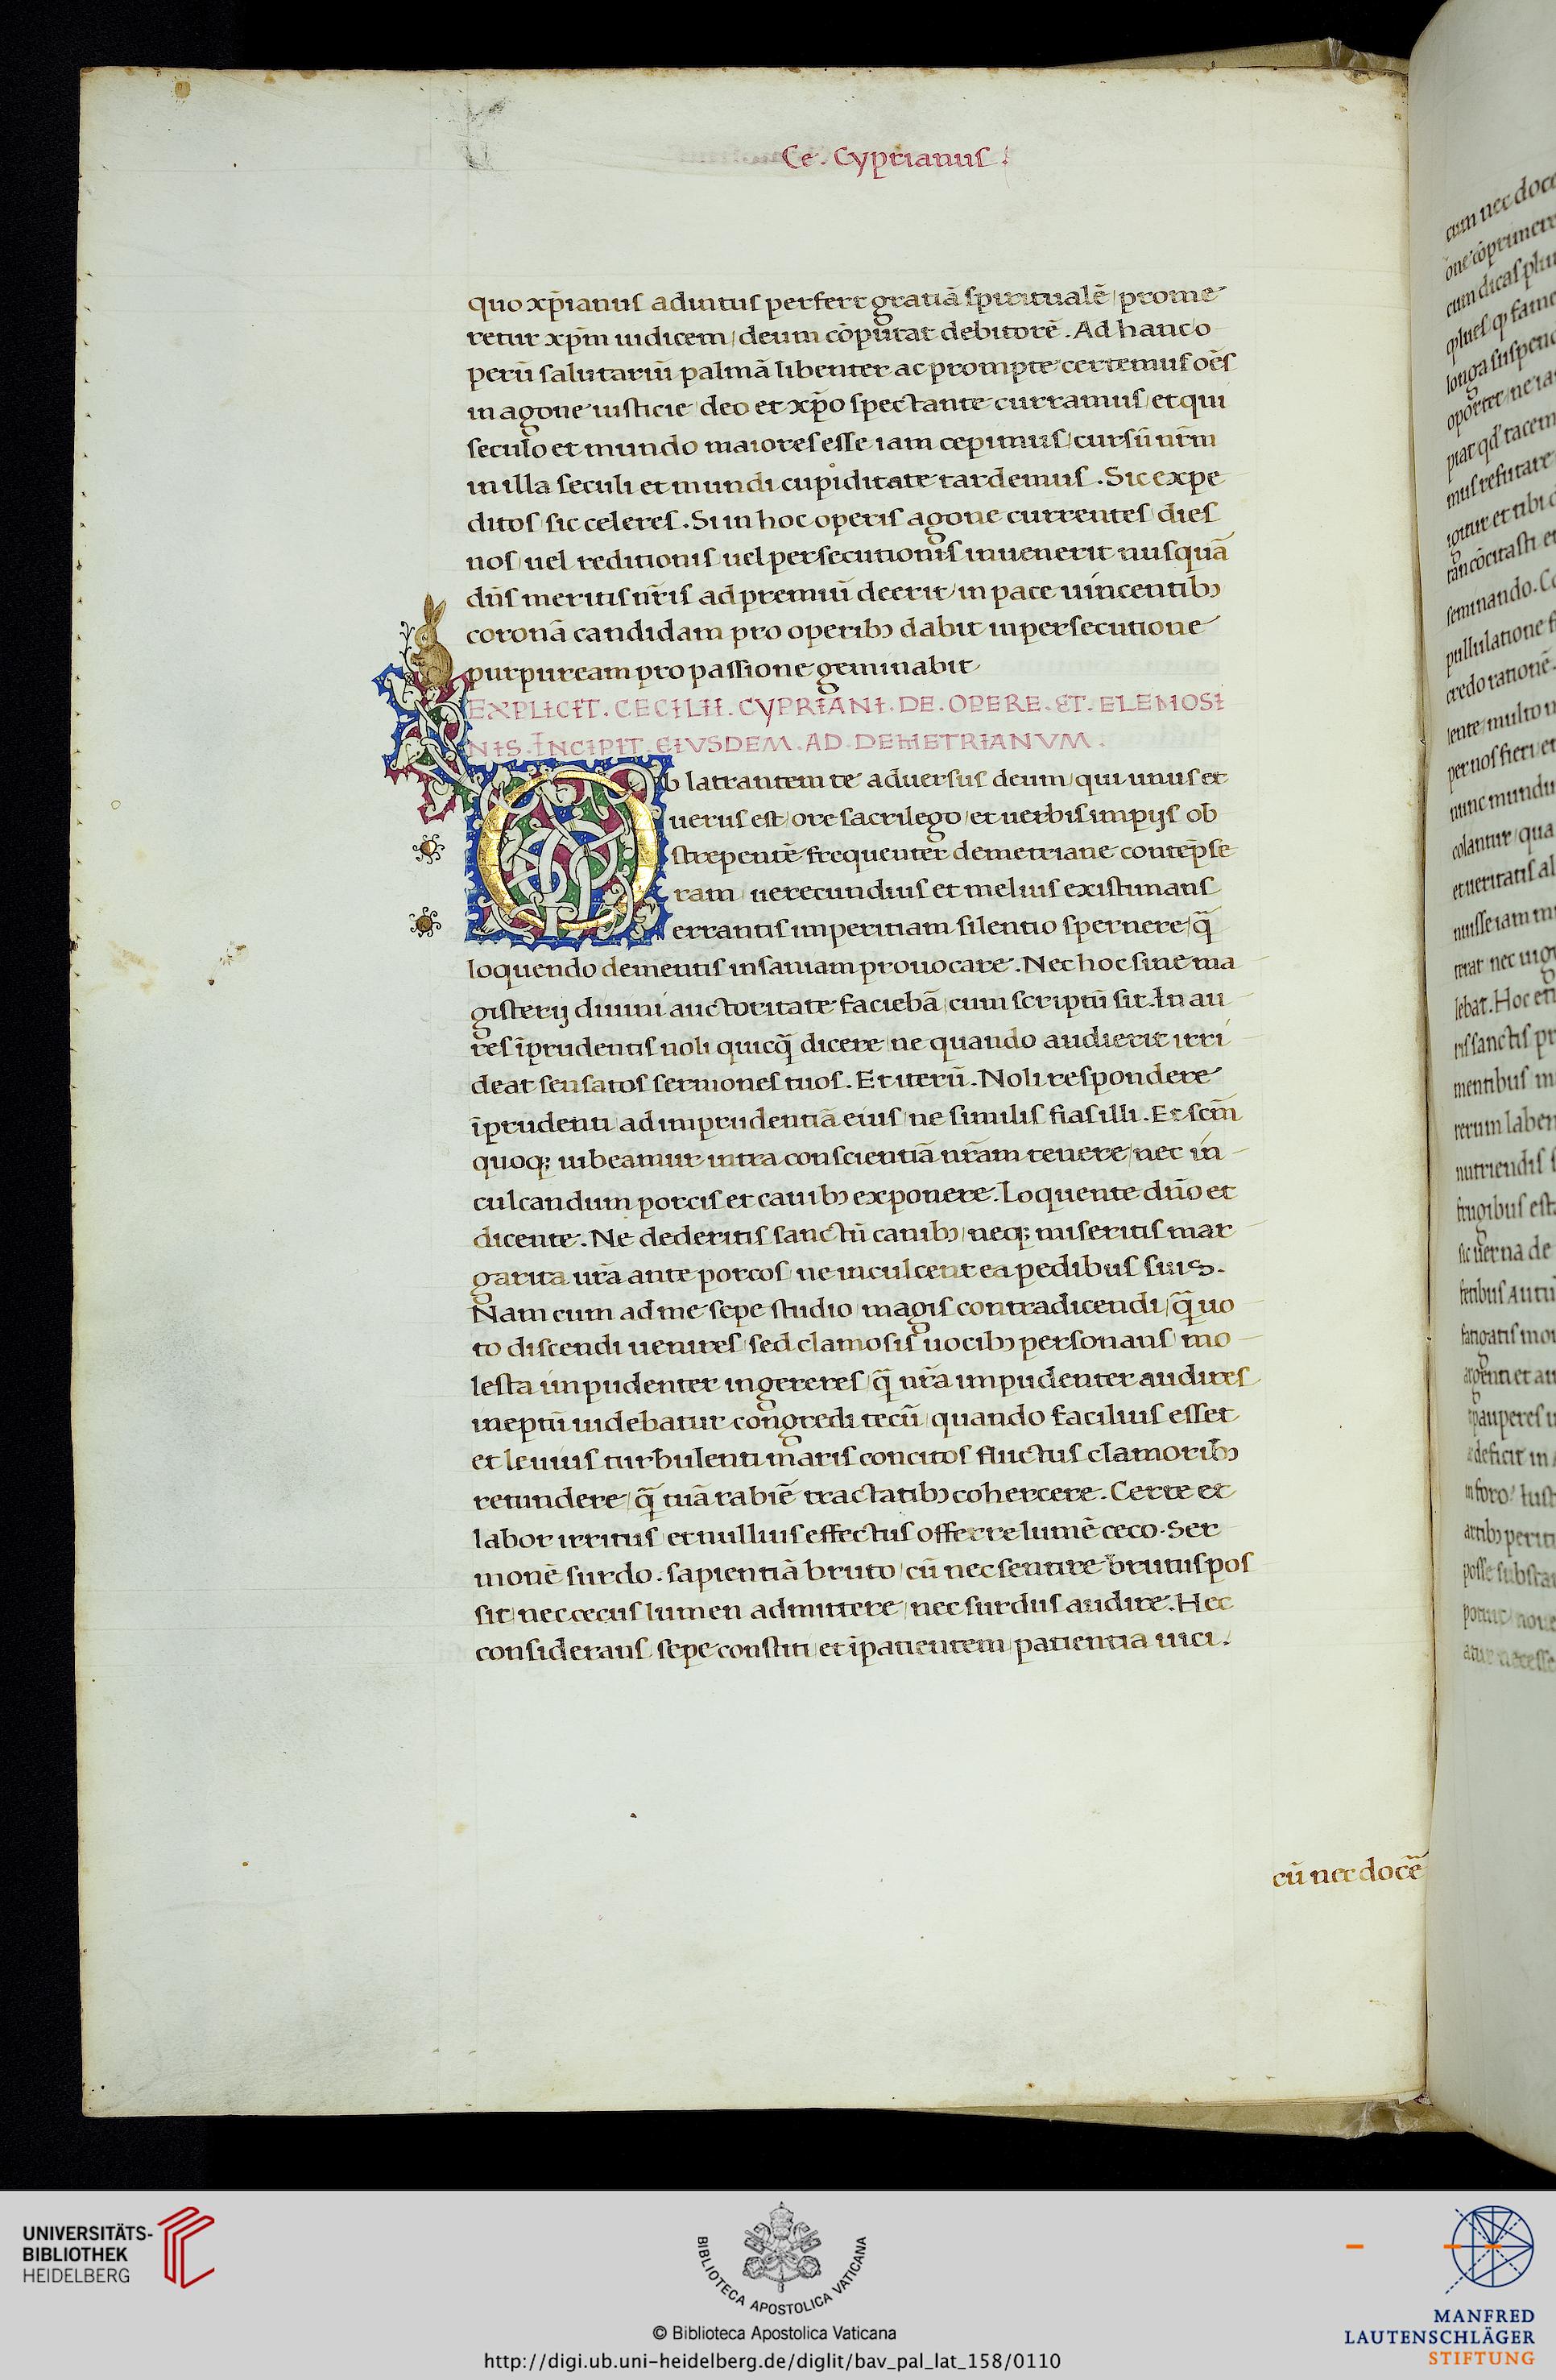 Ce. Cyprianus.
quo xp̄ianus adiutus perfert gratiā spiritualē prome
retur xp̄m iudicem deum cōputat debitorē. Ad hanc o
perū salutariū palmā libenter ac prompte certemus oēs
in agone iusticie deo et xp̄o spectante curramus et qui
seculo et mundo maiores esse iam cepimus cursū nr̄m
in illa seculi et mundi cupiditate tardemus. Sic expe
ditos sic celeres. Si in hoc operis agone currentes dies
nos uel reditionis uel persecutionis inuenerit nusquā
dn̄s meritis nr̄is ad premiū deerit in pace uincentibꝫ
coronā candidam pro operibꝫ dabit in persecutione
purpuream pro passione geminabit
EXPLICIT. CECILII. CYPRIANI. DE. OPERE. ET. ELEMOSI
NIS. INCIPIT. EIVSDEM. AD. DEMETRIANVM.
Ob latrantem te aduersus deum qui unus et
uerus est ore sacrilego et uerbis impijs ob
strepentē frequenter demetriane contēpse
ram uerecundius et melius existimans
errantis imperitiam silentio spernere q̄
loquendo dementis insaniam prouocare. Nec hoc sine ma
gisterij diuini auctoritate faciebā cum scriptū sit. In au
res īprudentis noli quicq̄ dicere ne quando audierit irri
deat sensatos sermones tuos. Et iterū. Noli respondere
īprudenti ad imprudentiā eius ne similis fias illi. Et scm̄
quoqꝫ iubeamur intra conscientiā nrām tenere nec in
culcandum porcis et canibꝫ exponere. Loquente dn̄o et
dicente. Ne dederitis sanctū canibꝫ neqꝫ miseritis mar
garita ur̄a ante porcos ne inculcent ea pedibus suis.
Nam cum ad me sepe studio magis contradicendi q̄ uo
to discendi uenires sed clamosis uocibꝫ personans mo
lesta impudenter ingereres q̄ nr̄a impudenter audires
ineptū uidebatur congredi tecū quando facilius esset
et leuius turbulenti maris concitos fluctus clamoribꝫ
retundere q̄ tuā rabiē tractatibꝫ cohercere. Certe et
labor irritus et nullius effectus offerre lumē ceco. Ser
monē surdo. sapientiā bruto cū nec sentire brutus pos
sit nec cecus lumen admittere nec surdus audire. Hec
considerans sepe constiti et īpatientem patientia uici.
cū nec docē
UNIVERSITÄTS-
BIBLIOTHEK
HEIDELBERG
BIBLIOTECA APOSTOLICA VATICANA
© Biblioteca Apostolica Vaticana
http://digi.ub.uni-heidelberg.de/diglit/bav_pal_lat_158/0110
MANFRED
LAUTENSCHLÄGER
STIFTUNG